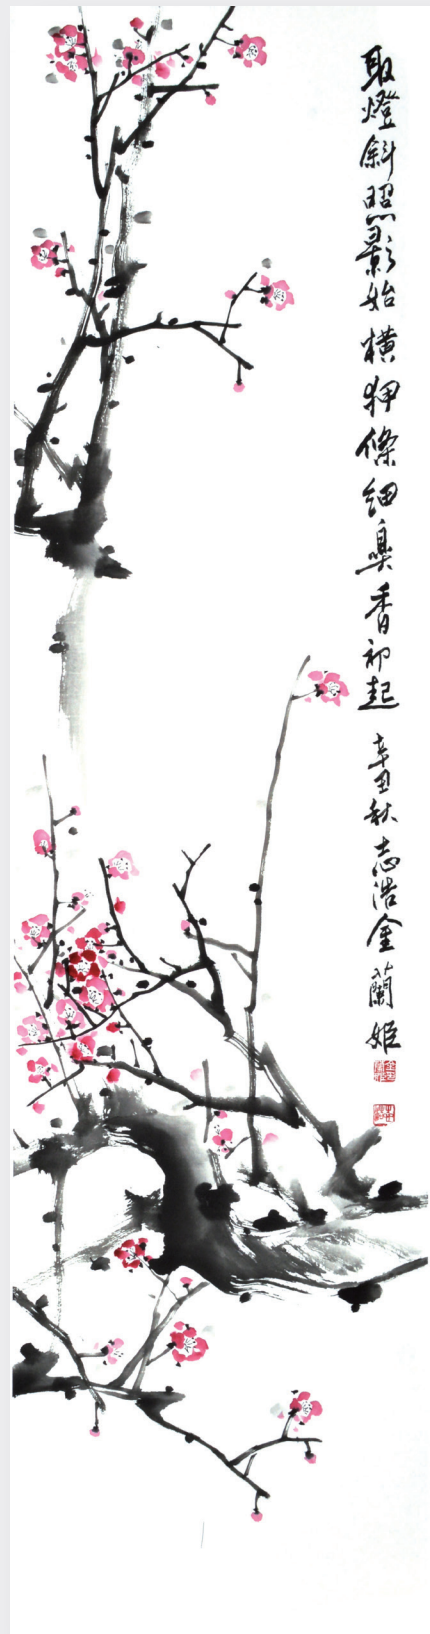 取燈斜照影始橫狎條細臭香初起 辛丑秋 志浩金蘭姬